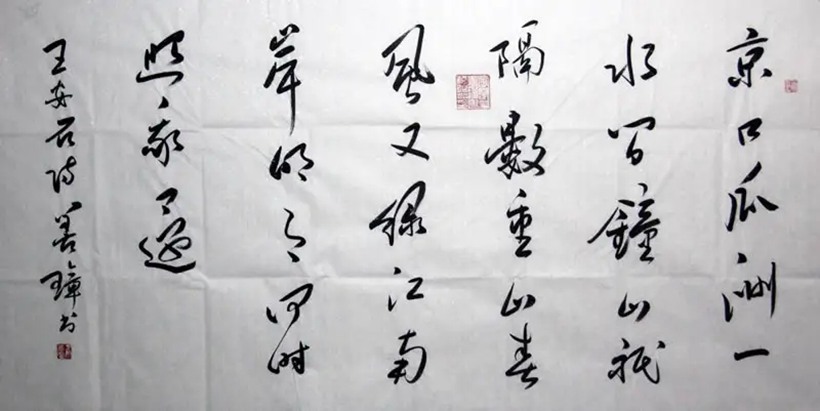 京口瓜洲一
水间鐘山祗
隔數重山春
風又緑江南
岸明月何时
照我還
王安石诗善璋书